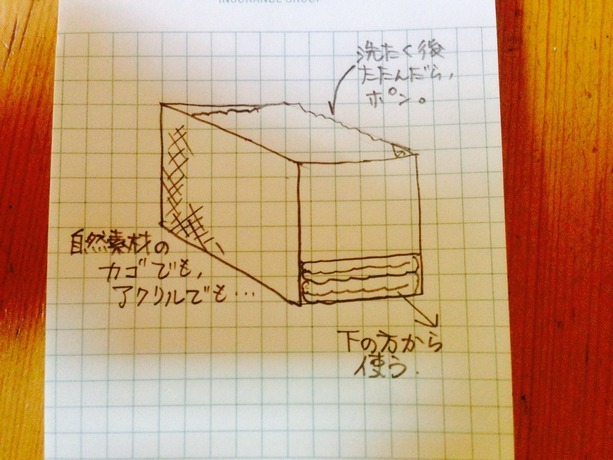 INSURANCE GROUP
洗たく後
たたんだら,
ポン。
自然素材の
カゴでも,
アクリルでも…
下の方から
使う.